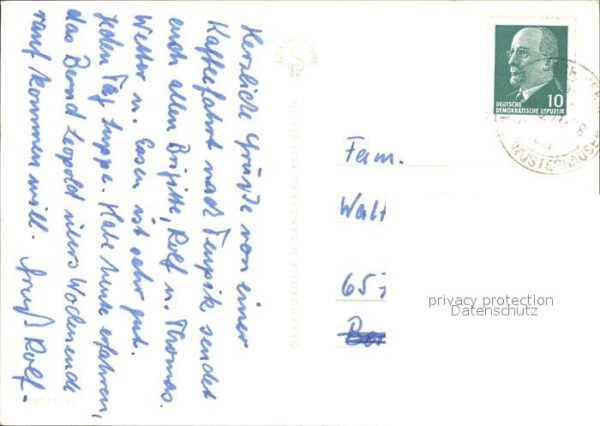 Herzliche Grüße von einer
Kaffeefahrt nach Teupitz sendet
euch allen Brigitte, Rolf u. Thomas.
Wetter u. Essen ist sehr gut.
Jeden Tag Suppe. Habe heute erfahren,
das Bernd Leopold übers Wochenende
rauf kommen will. Gruß Rolf-
DEUTSCHE
DEMOKRATISCHE REPUBLIK
10
WUSTERHAUSEN
Fam.
Walt
657
privacy protection
Datenschutz